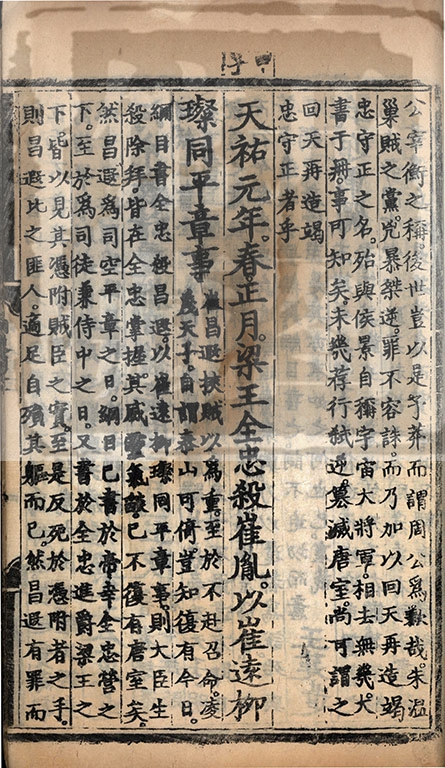 公宰衡之稱。後世豈以是予莽而謂周公爲歉哉。朱溫
巢賊之黨。兇暴桀逆。罪不容誅。而乃加以回天再造竭
忠守正之名。殆與侯景自稱宇宙大將軍。相去無幾。大
書于冊。事可知矣。未幾荐行弑逆。簒滅唐室。尚可謂之
回天再造竭
忠守正者乎
天祐元年。春正月。梁王全忠殺崔胤。以崔遠柳
璨同平章事
崔昌遐挾賊以爲重。至於不赴召命。凌
蔑天子。自謂泰山可倚。豈知復有今日。
綱目書全忠殺昌遐。以崔遠柳璨同平章事。則大臣生
殺除拜。皆在全忠掌握。其威靈氣燄已不復有唐室矣。
然昌遐爲司空平章之日。綱目已書於帝幸全忠營之
下。至於爲司徒兼侍中之日。又書於全忠進爵梁王之
下。皆以見其憑附賊臣之實。至是反死於憑附者之手。
則昌遐比之匪人。適足自殞其軀而已然昌遐有罪而